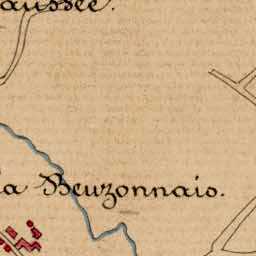 aussée.
la Beuzonnais.